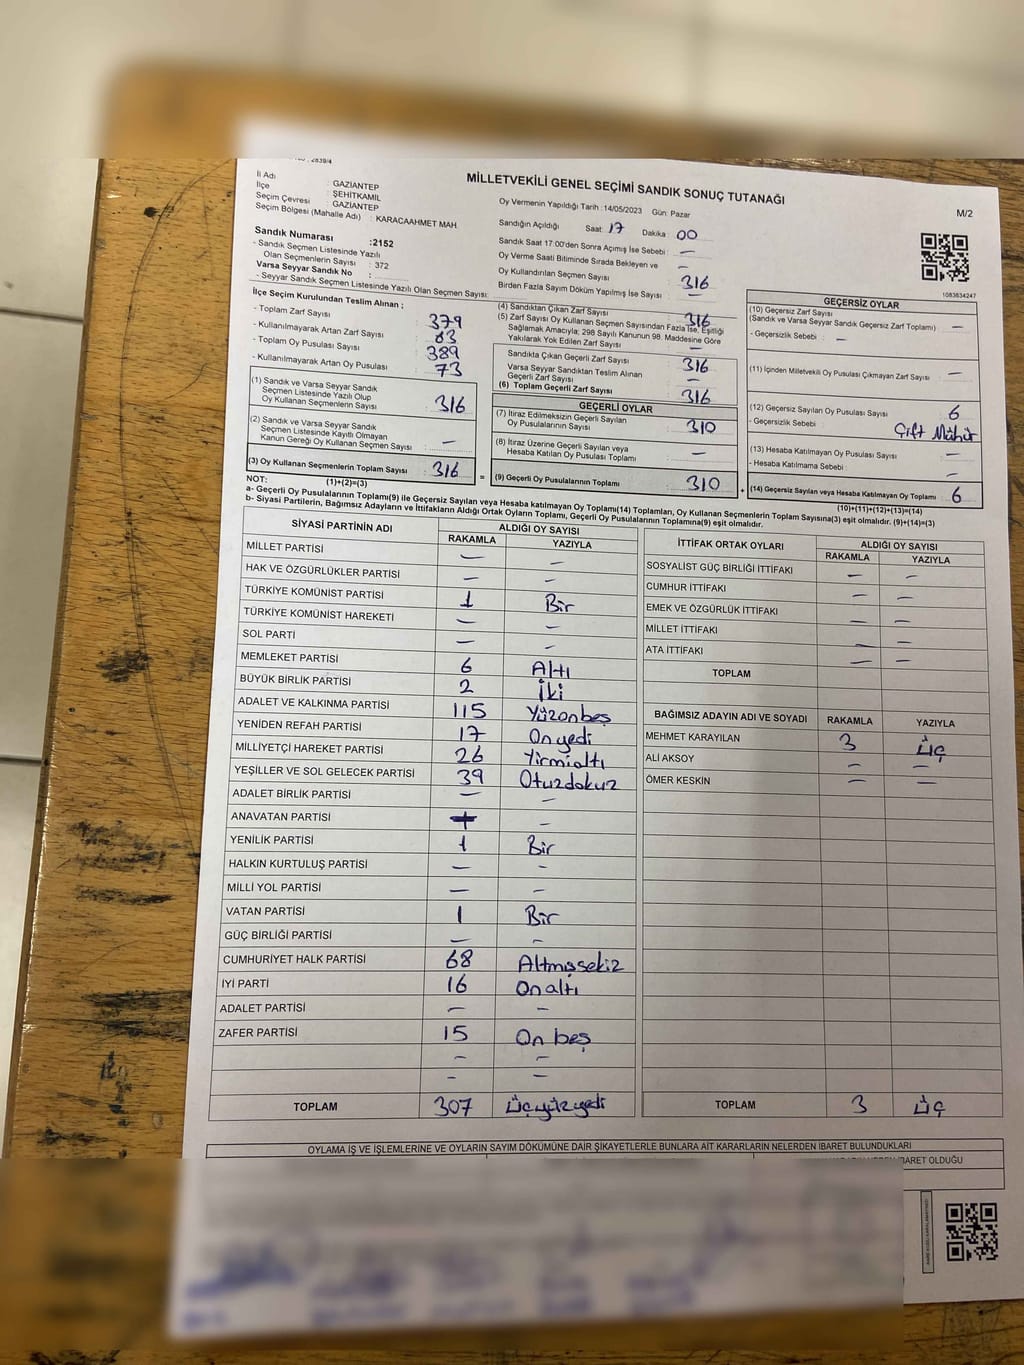 : 2839/4
MİLLETVEKİLİ GENEL SEÇİMİ SANDIK SONUÇ TUTANAĞI
M/2
İl Adı : GAZİANTEP
İlçe : ŞEHİTKAMİL
Seçim Çevresi : GAZİANTEP
Seçim Bölgesi (Mahalle Adı) : KARACAAHMET MAH
Sandık Numarası :2152
- Sandık Seçmen Listesinde Yazılı
Olan Seçmenlerin Sayısı : 372
Varsa Seyyar Sandık No :
- Seyyar Sandık Seçmen Listesinde Yazılı Olan Seçmen Sayısı:
Oy Vermenin Yapıldığı Tarih :14/05/2023 Gün: Pazar
Sandığın Açıldığı Saat 17 Dakika 00
Sandık Saat 17:00'den Sonra Açılmış İse Sebebi : —
Oy Verme Saati Bitiminde Sırada Bekleyen ve
Oy Kullandırılan Seçmen Sayısı —
Birden Fazla Sayım Döküm Yapılmış İse Sayısı : 316
—
1083634247
İlçe Seçim Kurulundan Teslim Alınan ;
- Toplam Zarf Sayısı : 379
- Kullanılmayarak Artan Zarf Sayısı : 63
- Toplam Oy Pusulası Sayısı : 389
- Kullanılmayarak Artan Oy Pusulası : 73
(1) Sandık ve Varsa Seyyar Sandık
Seçmen Listesinde Yazılı Olup
Oy Kullanan Seçmenlerin Sayısı 316
(2) Sandık ve Varsa Seyyar Sandık
Seçmen Listesinde Kayıtlı Olmayan
Kanun Gereği Oy Kullanan Seçmen Sayısı —
(3) Oy Kullanan Seçmenlerin Toplam Sayısı 316
(1)+(2)=(3)
(4) Sandıktan Çıkan Zarf Sayısı : 316
(5) Zarf Sayısı Oy Kullanan Seçmen Sayısından Fazla İse, Eşitliği
Sağlamak Amacıyla; 298 Sayılı Kanunun 98. Maddesine Göre
Yakılarak Yok Edilen Zarf Sayısı : —
Sandıkta Çıkan Geçerli Zarf Sayısı 316
Varsa Seyyar Sandıktan Teslim Alınan
Geçerli Zarf Sayısı —
(6) Toplam Geçerli Zarf Sayısı 316
GEÇERLİ OYLAR
(7) İtiraz Edilmeksizin Geçerli Sayılan
Oy Pusulalarının Sayısı : 310
(8) İtiraz Üzerine Geçerli Sayılan veya
Hesaba Katılan Oy Pusulası Toplamı : —
= (9) Geçerli Oy Pusulalarının Toplamı : 310
GEÇERSİZ OYLAR
(10) Geçersiz Zarf Sayısı
(Sandık ve Varsa Seyyar Sandık Geçersiz Zarf Toplamı) : —
- Geçersizlik Sebebi : —
(11) İçinden Milletvekili Oy Pusulası Çıkmayan Zarf Sayısı : —
(12) Geçersiz Sayılan Oy Pusulası Sayısı : 6
- Geçersizlik Sebebi : Çift Mühür
(13) Hesaba Katılmayan Oy Pusulası Sayısı : —
- Hesaba Katılmama Sebebi : —
+ (14) Geçersiz Sayılan veya Hesaba Katılmayan Oy Toplamı 6
(10)+(11)+(12)+(13)=(14)
NOT:
a- Geçerli Oy Pusulalarının Toplamı(9) ile Geçersiz Sayılan veya Hesaba katılmayan Oy Toplamı(14) Toplamları, Oy Kullanan Seçmenlerin Toplam Sayısına(3) eşit olmalıdır. (9)+(14)=(3)
b- Siyasi Partilerin, Bağımsız Adayların ve İttifakların Aldığı Ortak Oyların Toplamı, Geçerli Oy Pusulalarının Toplamına(9) eşit olmalıdır.
SİYASİ PARTİNİN ADI ALDIĞI OY SAYISI
RAKAMLA YAZIYLA
MİLLET PARTİSİ — —
HAK VE ÖZGÜRLÜKLER PARTİSİ — —
TÜRKİYE KOMÜNİST PARTİSİ 1 Bir
TÜRKİYE KOMÜNİST HAREKETİ — —
SOL PARTİ — —
MEMLEKET PARTİSİ 6 Altı
BÜYÜK BİRLİK PARTİSİ 2 İki
ADALET VE KALKINMA PARTİSİ 115 Yüzonbeş
YENİDEN REFAH PARTİSİ 17 Onyedi
MİLLİYETÇİ HAREKET PARTİSİ 26 Yirmialtı
YEŞİLLER VE SOL GELECEK PARTİSİ 39 Otuzdokuz
ADALET BİRLİK PARTİSİ — —
ANAVATAN PARTİSİ — —
YENİLİK PARTİSİ 1 Bir
HALKIN KURTULUŞ PARTİSİ — —
MİLLİ YOL PARTİSİ — —
VATAN PARTİSİ 1 Bir
GÜÇ BİRLİĞİ PARTİSİ — —
CUMHURİYET HALK PARTİSİ 68 Altmışsekiz
İYİ PARTİ 16 Onaltı
ADALET PARTİSİ — —
ZAFER PARTİSİ 15 On beş
— —
— —
TOPLAM 307 Üçyüzyedi
İTTİFAK ORTAK OYLARI ALDIĞI OY SAYISI
RAKAMLA YAZIYLA
SOSYALİST GÜÇ BİRLİĞİ İTTİFAKI — —
CUMHUR İTTİFAKI — —
EMEK VE ÖZGÜRLÜK İTTİFAKI — —
MİLLET İTTİFAKI — —
ATA İTTİFAKI — —
TOPLAM
BAĞIMSIZ ADAYIN ADI VE SOYADI RAKAMLA YAZIYLA
MEHMET KARAYILAN 3 Üç
ALİ AKSOY — —
ÖMER KESKİN — —
TOPLAM 3 Üç
OYLAMA İŞ VE İŞLEMLERİNE VE OYLARIN SAYIM DÖKÜMÜNE DAİR ŞİKAYETLERLE BUNLARA AİT KARARLARIN NELERDEN İBARET BULUNDUKLARI
İBARET OLDUĞU